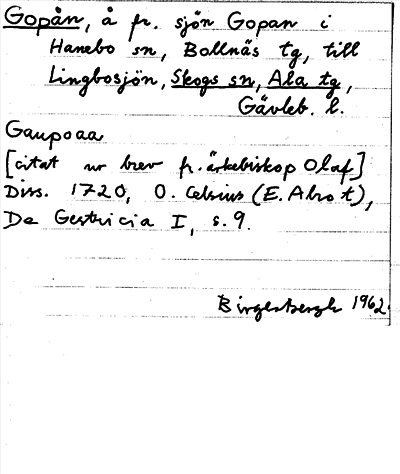 Gopån, å fr. sjön Gopan i
Hanebo sn, Bollnäs tg, till
Lingbosjön, Skogs sn, Ala tg,
Gävleb. l.
Gaupoaa
[citat ur brev fr. ärkebiskop Olaf]
Diss. 1720, O. Celsius (E. Alrot),
De Gestricia I, s. 9.
Birger Bergh 1962.